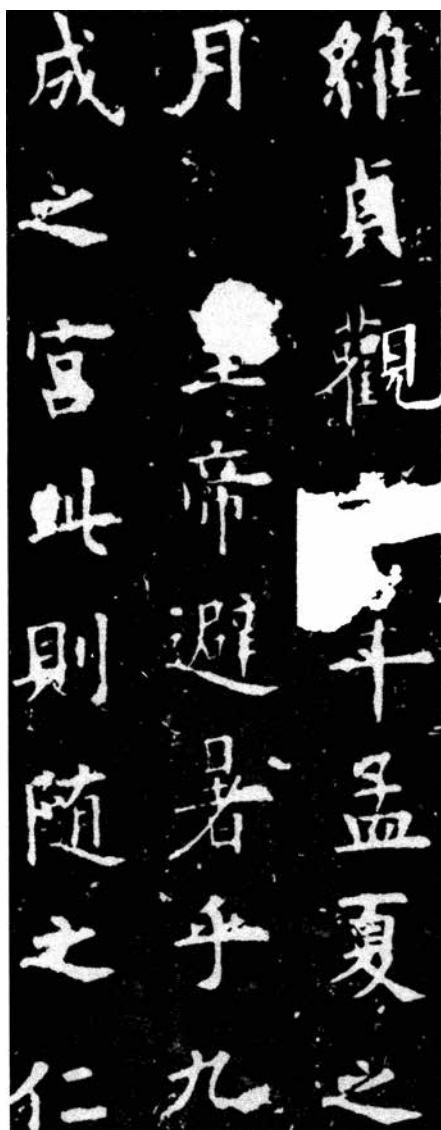 維貞觀年孟夏之
月皇帝避暑乎九
成之宮此則随之仁